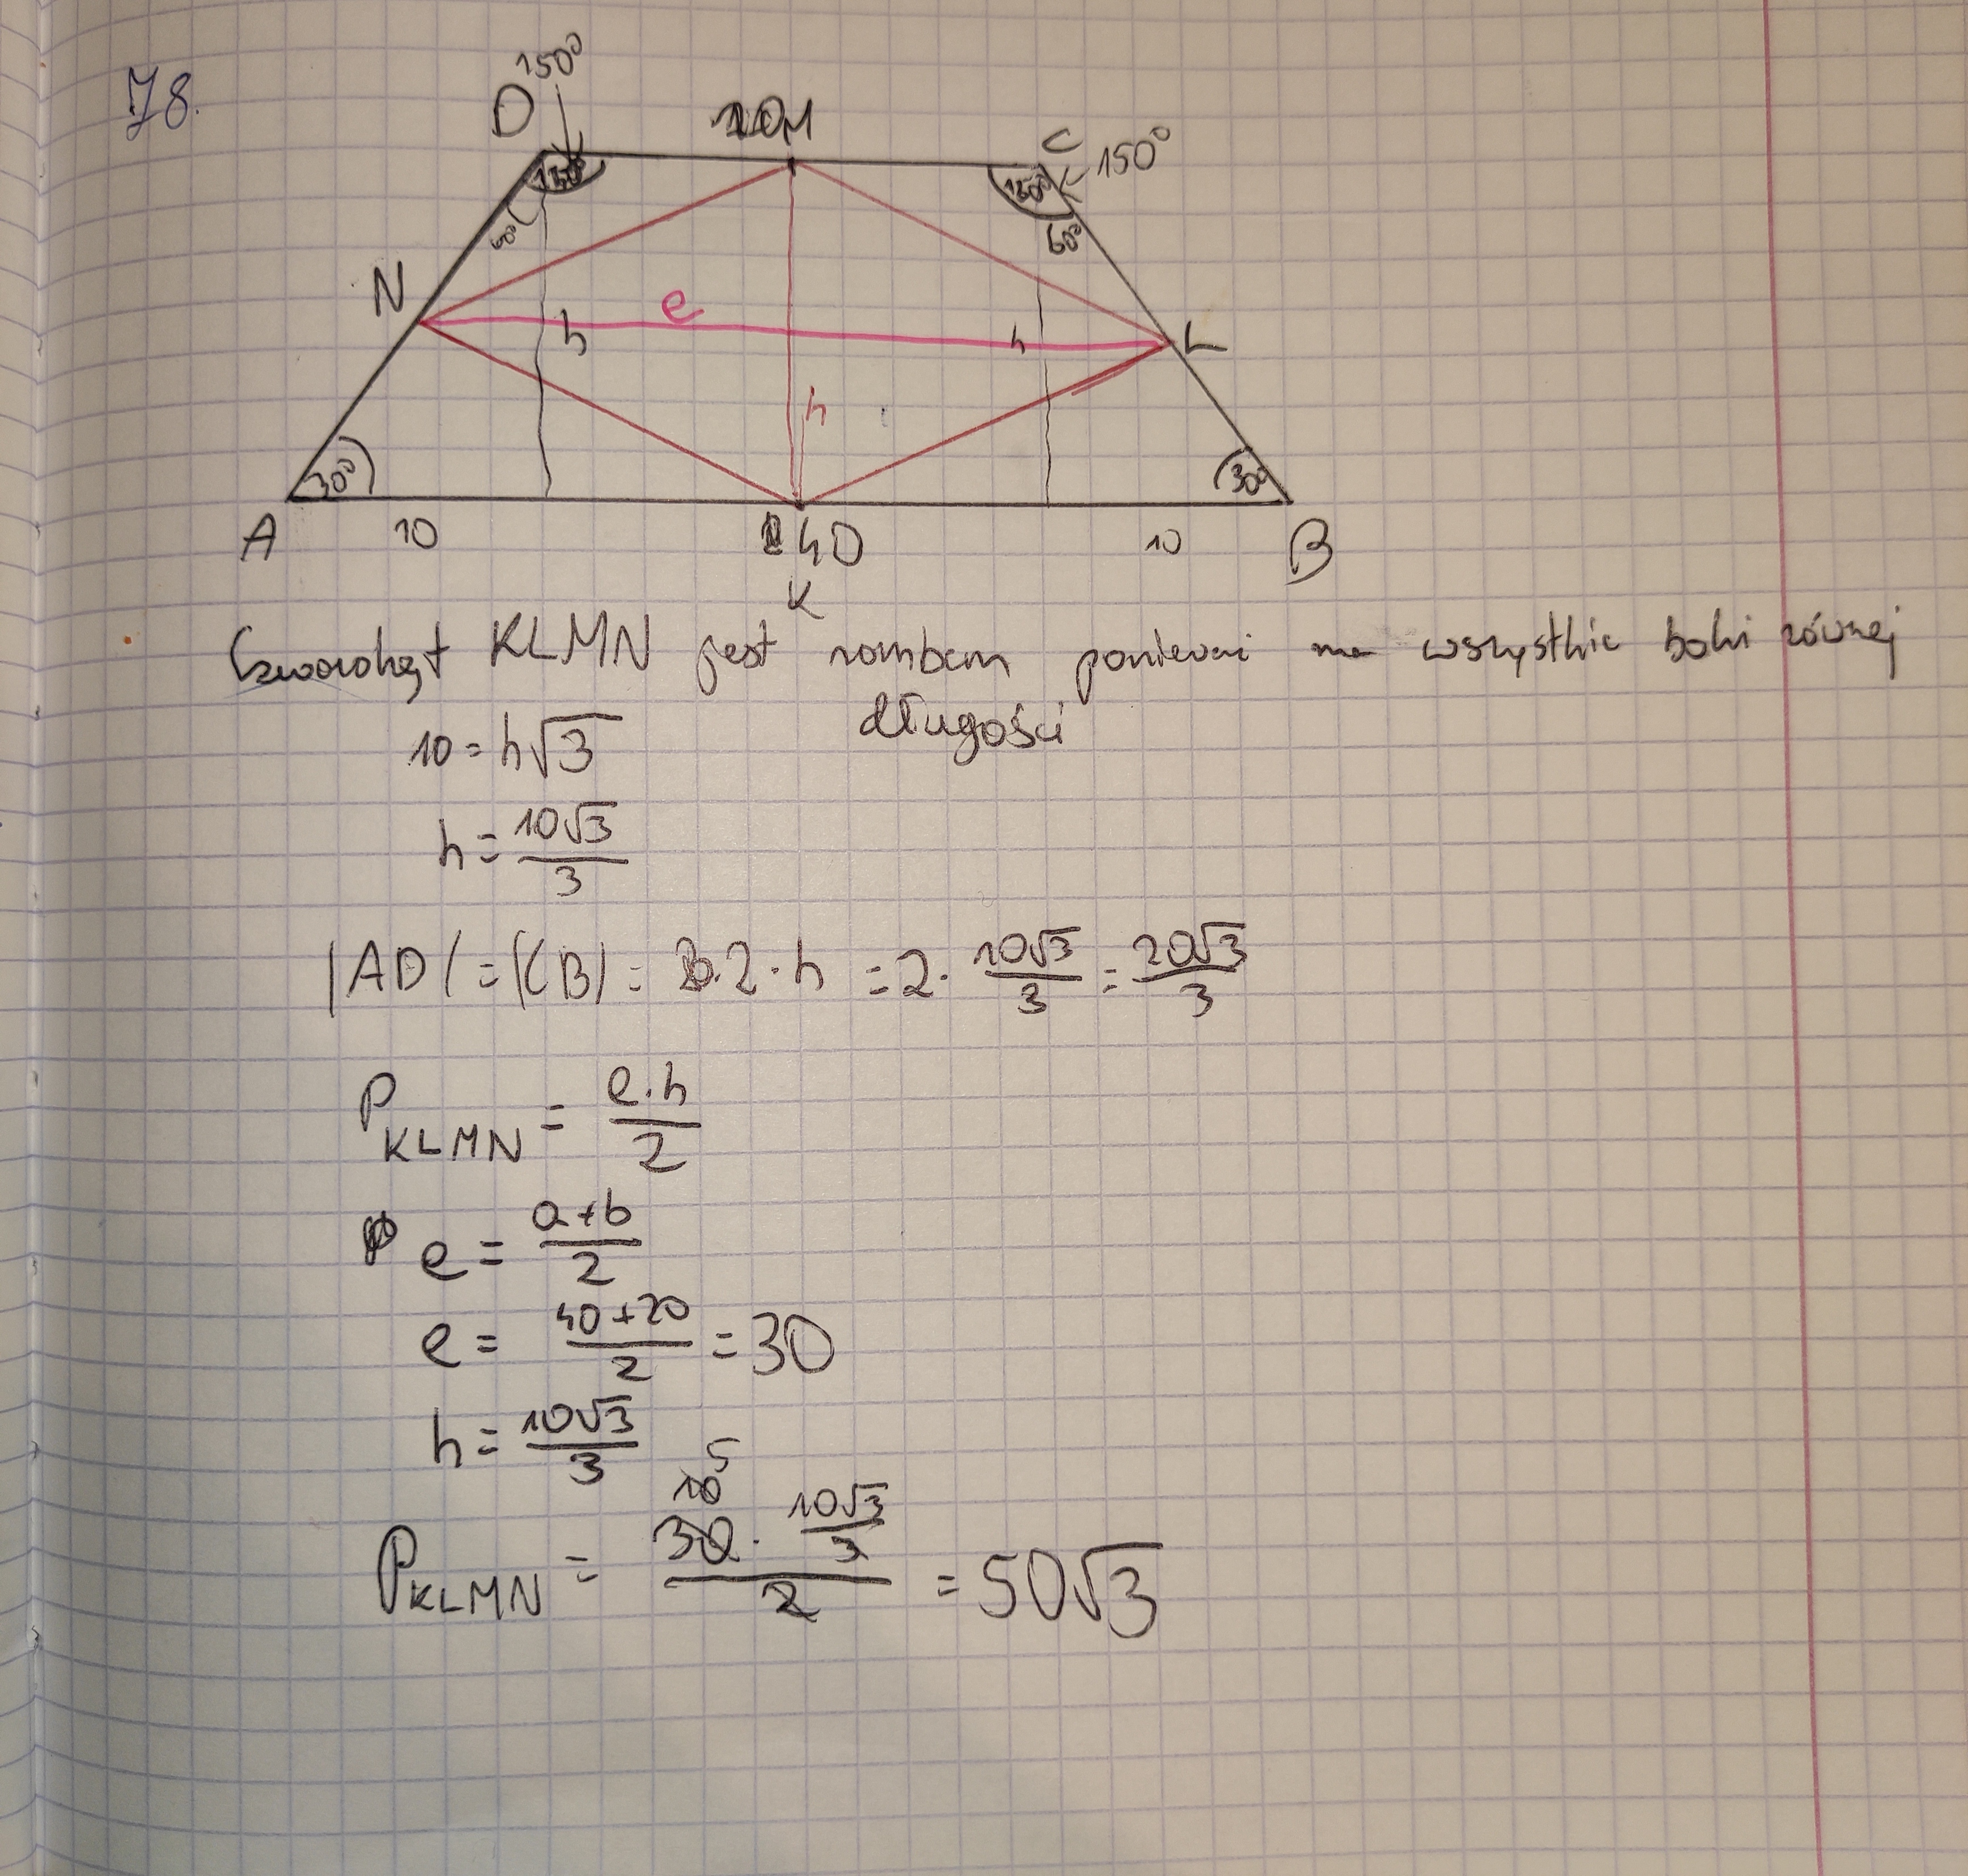 78.
D 150° 20 M C 150°
150° 150°
60° 60°
N e h h L
h
30° 30°
A 10 40 10 B
K
Czworokąt KLMN jest rombem ponieważ ma wszystkie boki równej
długości
10 = h√3
h = 10√3/3
|AD| = |CB| = 2·h = 2· 10√3/3 = 20√3/3
P KLMN = e·h/2
e = a+b/2
e = 40+20/2 = 30
h = 10√3/3
10 5
P KLMN = 30 · 10√3/3 / 2 = 50√3